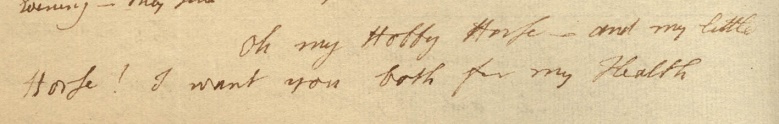 Evening – may
Oh my Hobby Horse – and my little
Horse! I want you both for my Health